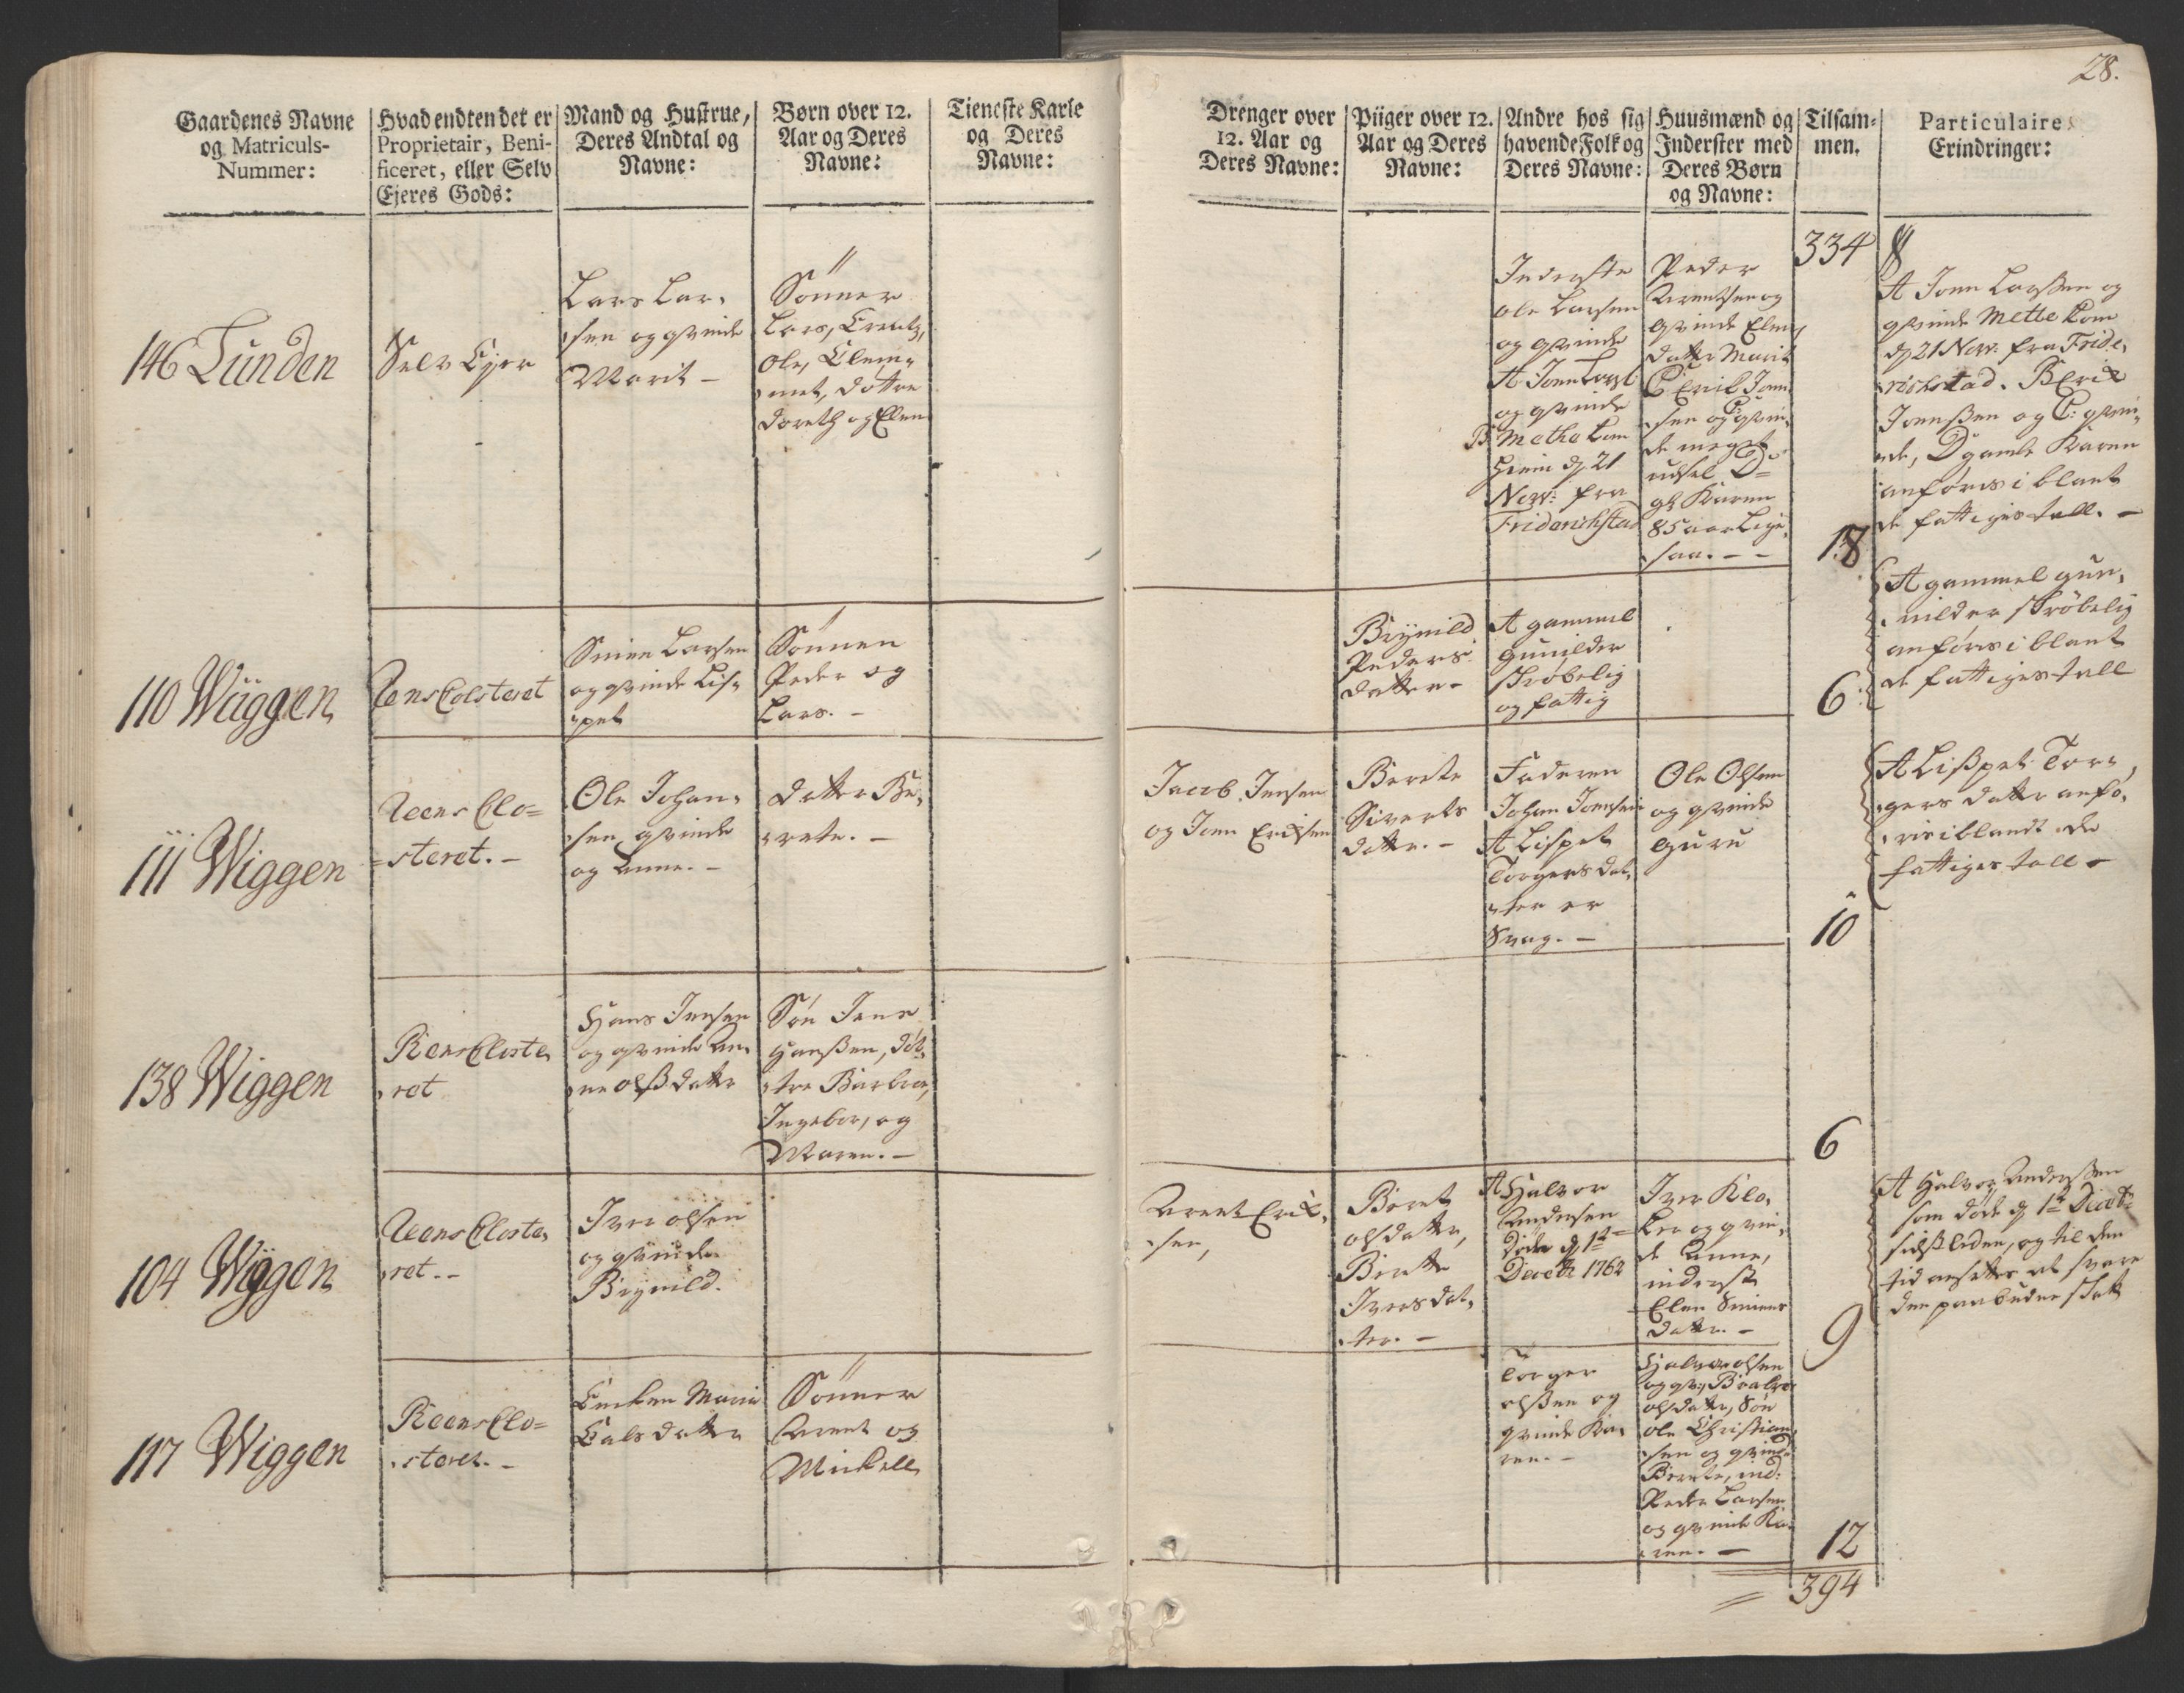 28.
Gaardenes Navne
og Matriculs-
Nummer:
Hvad endten det er
Proprietair, Beni-
ficeret, eller Selv
Ejeres Gods:
Mand og Hustrue,
Deres Andtal og
Navne:
Børn over 12.
Aar og Deres
Navne:
Tieneste Karle
og Deres
Navne:
Drenger over
12. Aar og
Deres Navne:
Piiger over 12.
Aar og Deres
Navne:
Andre hos sig
havende Folk og
Deres Navne:
Huusmænd og
Inderster med
Deres Børn
og Navne:
Tilsam-
men.
Particulaire
Erindringer:
334
146 Lunden
Selv Ejer
Lars Lar,
sen og qvinde
Marit -
Sønner
Lars, Arent,
Ole, Clem,
met, døttre
Doreth og Elen
Inderste
Ole Larsen
og qvinde
A Jonn Larss
og qvinde
B. Methe kom
hiem d. 21
Nov: fra
Friderichstad
Peder
Arentsen og
qvinde Elen,
datter Marit
C Erik Jonn
sen og C: qvin,
de meget
udsel D=
gl Karen
85 aar Lige,
saa. - -
18
A Jonn Larssen og
qvinde Mette kom
d. 21 Nov: fra Fride,
richstad. B Erik
Jonnssen og C: qvin,
de, D gamle Karen
anføres i blant
de fattiges tall. -
110 Wiiggen
Rens Closteret
Siven Larsen
og qvinde Lis,
pet
Sønnen
Peder og
Lars. -
Brynild
Peders
datter -
A gammel
Gunilder
skrøbelig
og fattig
6
A gammel Gun,
nilder skrøbelig
anføres i blant
de fattiges tall
111 Wiggen
Reens Clo=
=steret. -
Ole Johan,
sen qvinde
og Anne. -
datter Be,
rete. -
Jacob Jensen
og Jonn Erichsen
Berete
Siverts
datter. -
Faderen
Johan Jonnsen
A Lispet
Torgers dat,
ter er
Svag. -
Ole Olsen
og qvinde
Guru
10
A Lisspet Tor,
gers datter anfø,
res i blandt de
fattiges tall -
138 Wiggen
Rens Closte,
ret
Hans Jensen
og qvinde An,
ne Olss datter
Søn Jens
Hanssen, Døt,
tre Barbra,
Ingebor, og
Maren. -
6
104 Wiggen
Reens Closte,
ret. -
Iver Olsen
og qvinde
Brynild.
Arent Erik,
sen,
Beret
Olsdatter,
Berette
Ivers dat,
ter. -
A Halvor
Andersen
døde d. 1te
Decebr 1762
Iver Klo,
ker og qvin,
de Anne,
inderste
Elen Siviens
datter. -
9
A Halvor Anderssen
som døde d. 1te Decebr
sidstleden, og til den
tid ansettes at svare
den paabudne skat
117 Wiggen
Reens Clo=
steret. -
Enken Maria
Cals datter
Sønner
Arent og
Mickell
Torger
Olssen og
qvinde Ka,
ren. -
Halvor Olsen
og qv:
Olsdatter, Søn
Ole Christian,
sen og qvinde
Berete, ind:
Peder Larsen
og qvinde Ka,
ren. -
12
394